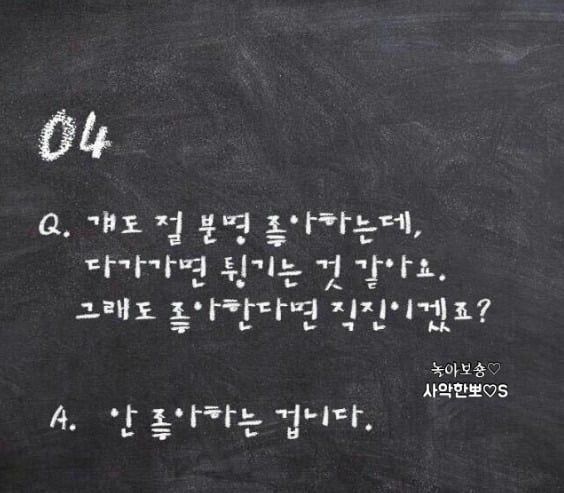 04
Q. 걔도 절 분명 좋아하는데,
다가가면 튕기는 것 같아요.
그래도 좋아한다면 직진이겠죠?
녹아보숑♡
사악한뽀♡S
A. 안 좋아하는 겁니다.